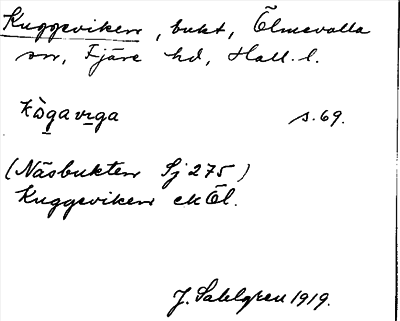 Kuggeviken, bukt, Ölmevalla
sn, Fjäre hd, Hall. l.
s. 69.
(Näsbukten Sj 275)
Kuggeviken ek Öl.
J. Sahlgren 1919.